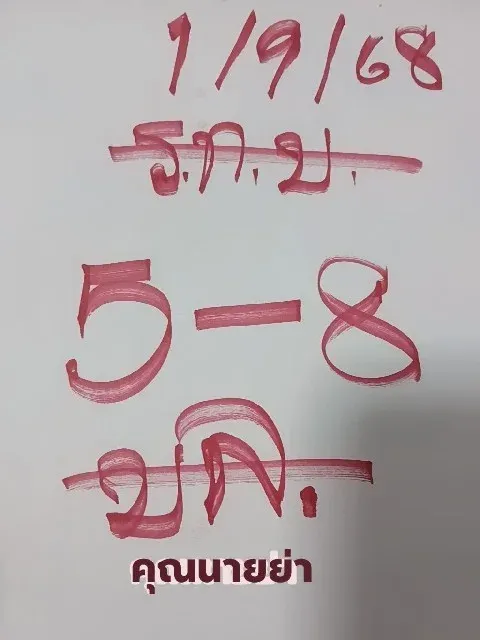 1/9/68
ร.ท.บ.
5-8
บล.
คุณนายย่า